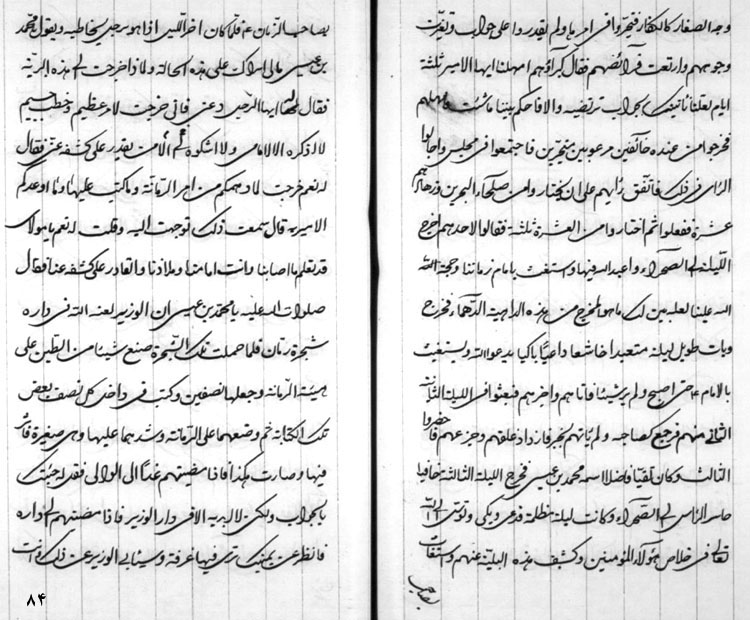 وجه الصغار كالكفار فتحيّروا في امرها ولم يقدروا على جواب وتغيّرت
وجوههم وارتعدت فرائصهم فقال كبراؤهم امهلنا ايها الامير ثلثة
ايام لعلنا ناتيك بجواب ترتضيه والا فاحكم بيننا ما شئت فامهلهم
فخرجوا من عنده خائفين مرعوبين متحيّرين فاجتمعوا في مجلس واجالوا
الراى في ذلك فاتفق رأيهم على ان يختاروا من صلحاء البحرين وزهادهم
عشرة ففعلوا ثم اختاروا من العشرة ثلثة فقالوا لاحدهم اخرج
الليلة الى الصحراء واعبد الله فيها واستغث بامام زماننا وحجة الله
الله علينا لعله يبين لك ما هو المخرج من هذه الداهية الدّهماء فخرج
وبات طول ليلة متعبدا خاشعا داعيًا باكيا يدعو الله ويستغيث
بالامام ع حتى اصبح ولم ير شيئا فاتاهم واخبرهم فبعثوا في الليلة الثانية
الثاني منهم فرجع كصاحبه ولم ياتهم بخبر فازداد قلقهم وجزعهم فاحضروا
الثالث وكان تقيّا فاضلا اسمه محمد بن عيسى فخرج الليلة الثالثة حافيا
حاسر الرأس الى الصحراء وكانت ليلة مظلمة فدعى وبكى وتوسّل الى الله
تعالى في خلاص هؤلاء المؤمنين وكشف هذه البلية عنهم واستغاث
بصاحب
بصاحب الزمان ع فلمّا كان اخر الليل اذا هو برجل يخاطبه ويقول يا محمد
بن عيسى مالى اراك على هذه الحالة ولماذا خرجت الى هذه البريّة
فقال له ايها الرجل دعنى فانى خرجت لامر عظيم وخطب جسيم
لا اذكره الا لامامى ولا اشكوه الا لمن يقدر على كشفه عنّى فقال
له نعم خرجت لما دهمكم من امر الرمّانة وما كتب عليها وما اوعدكم
الامير به قال سمعت ذلك توجهت اليه وقلت له نعم يا مولاى
قد تعلم ما اصابنا وانت امامنا وملاذنا والقادر على كشفه عنا فقال
صلوات الله عليه يا محمد بن عيسى ان الوزير لعنه الله في داره
شجرة رمّان فلما حملت تلك الشجرة صنع شيئا من الطين على
هيئة الرمّانة وجعلها نصفين وكتب في داخل كل نصف بعض
تلك الكتابة ثم وضعهما على الرمّانة وشدهما عليها وهى صغيرة فاثر
فيها وصارت هكذا فاذا مضيتم غدًا الى الوالى فقل له جئتك
بالجواب ولكنى لا ابديه الا فى دار الوزير فاذا مضيتم الى داره
فانظر عن يمينك ترى فيها غرفة وسيابى الوزير عن ذلك وانت
۸۴